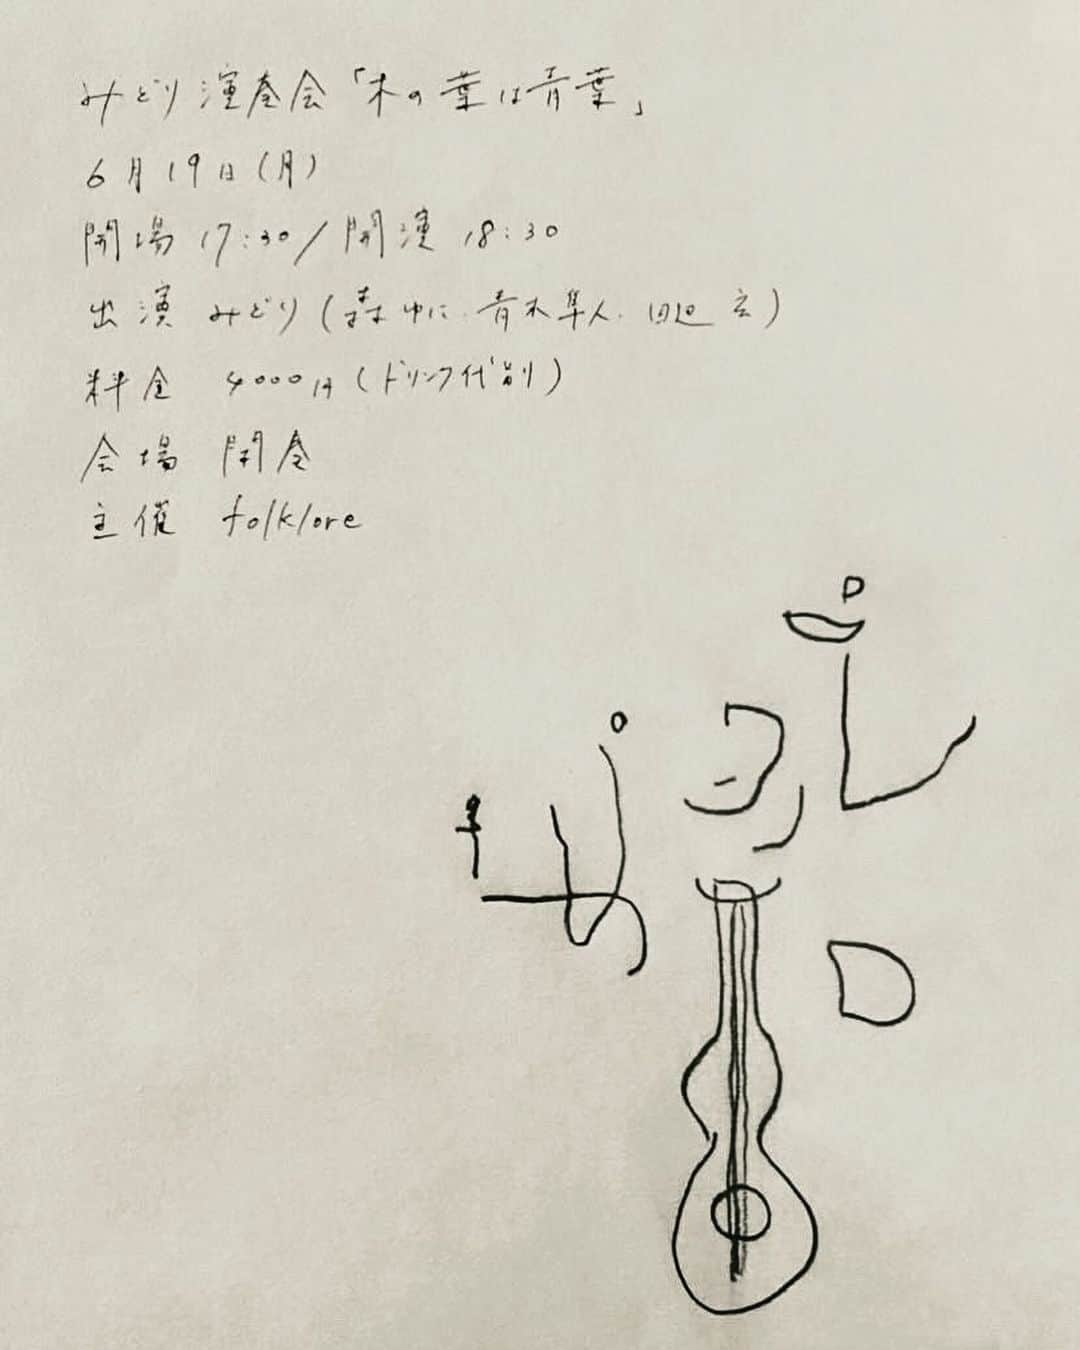 みどり 演奏会「木の葉は青葉」
6月19日(月)
開場 17:30 / 開演 18:30
出演 みどり (森ゆに、青木隼人、田辺 玄)
料金 4000円 (ドリンク代別)
会場
主催 folklore